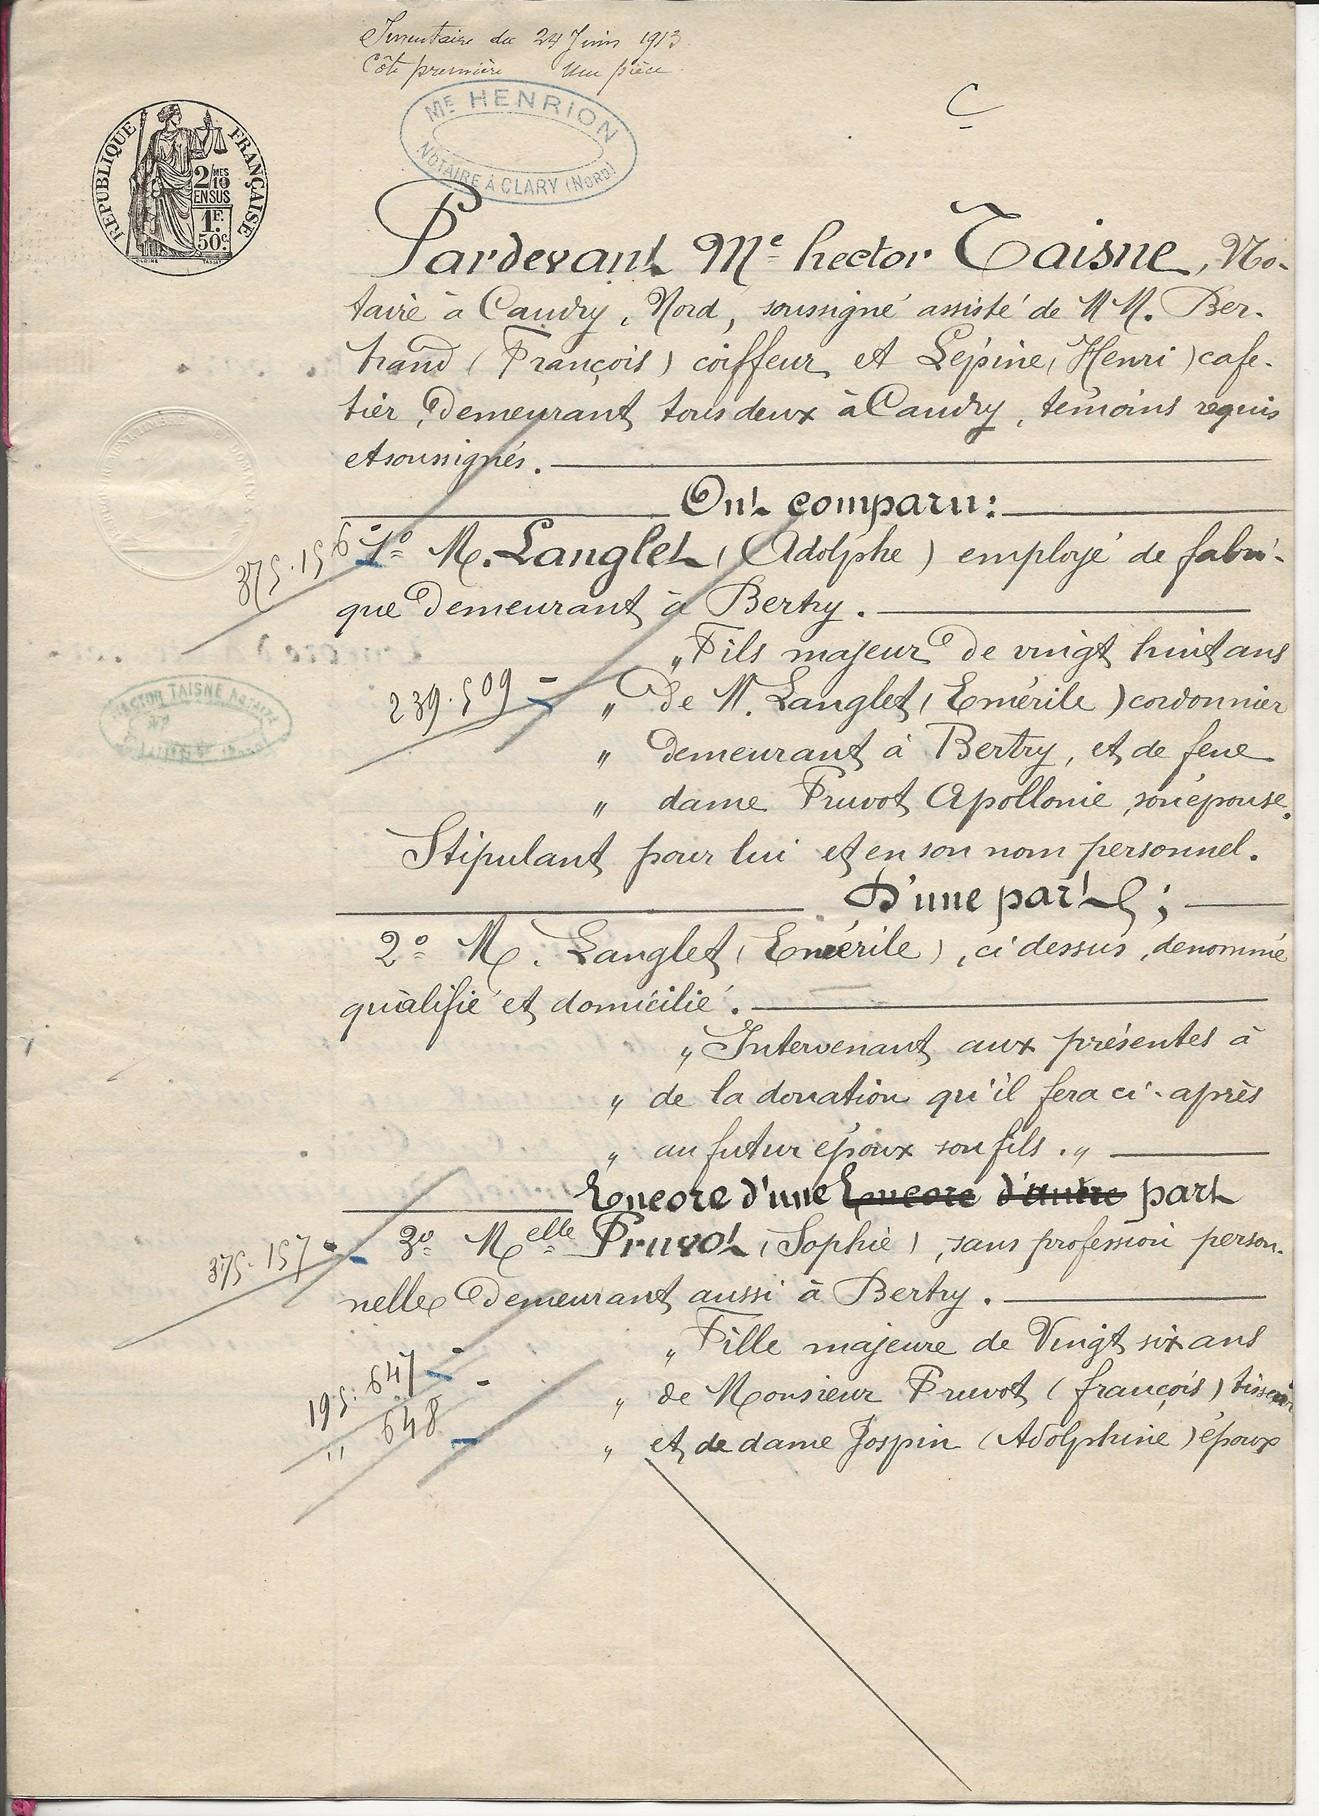 Inventaire du 24 Juin 1913
Côte première Une pièce
C
ME HENRION
NOTAIRE À CLARY (NORD)
REPUBLIQUE FRANÇAISE
2/10 MES
EN SUS
1F.
50c.
Pardevant Me hector Taisne, No-
taire à Caudry, Nord, soussigné assisté de MM. Ber-
trand (François) coiffeur et Lépine (Henri) cafe-
tier, demeurant tous deux à Caudry, témoins requis
et soussignés.
Ont comparu:
375.156
1° M. Langlet (Adolphe) employé de fabri-
que demeurant à Bertry.
„ Fils majeur de vingt huit ans
239.509
„ de M. Langlet (Emérile) cordonnier
HECTOR TAISNE NOTAIRE
„ demeurant à Bertry, et de feue
„ dame Pruvot Apollonie, son épouse.
Stipulant pour lui et en son nom personnel.
D'une part;
2° M. Langlet (Emérile), ci dessus, denommé
qualifié et domicilié.
„ Intervenant aux présentes à
„ de la donation qu'il fera ci-après
„ au futur époux son fils. „
Encore d'une Encore d'autre part
375.157
3° Melle Pruvot (Sophie), sans profession person-
nelle demeurant aussi à Bertry.
„ Fille majeure de Vingt six ans
195.647
„ de Monsieur Pruvot (françois) tisseur
„ 648
„ et de dame Jospin (Adolphine) époux